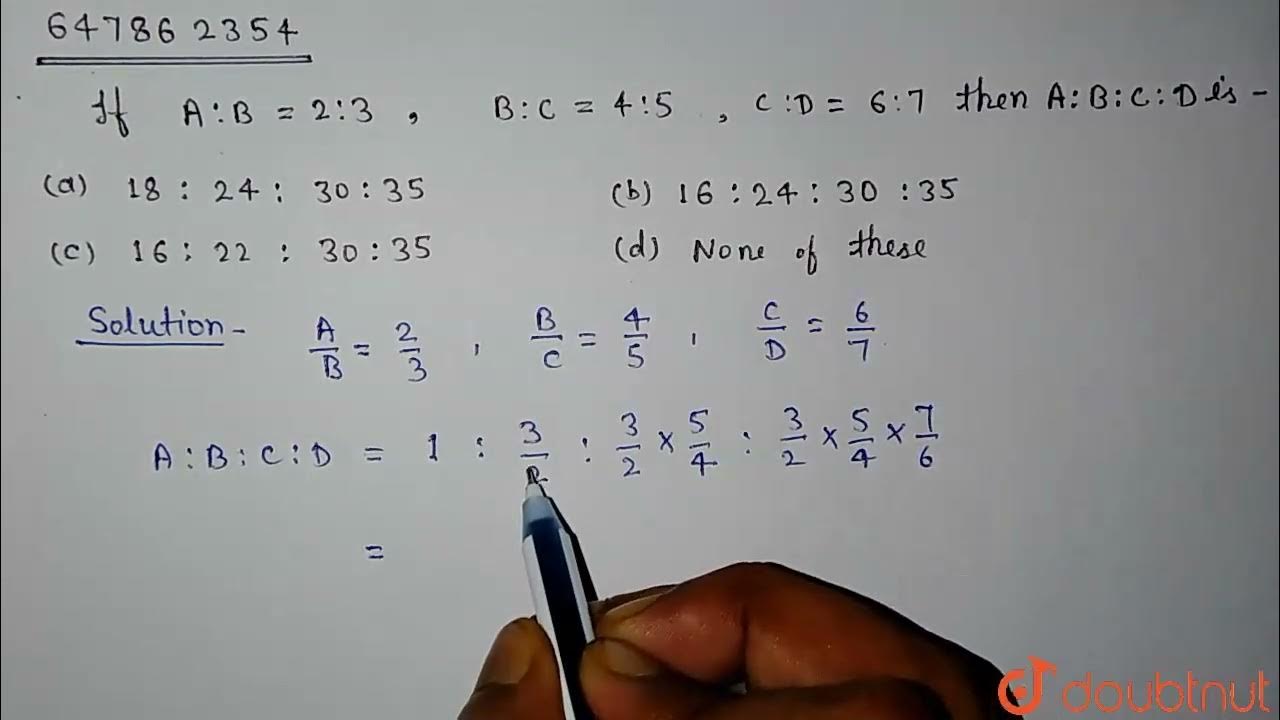 647862354
If A:B = 2:3 , B:C = 4:5 , C:D = 6:7 then A:B:C:D is -
(a) 18 : 24 : 30 : 35 (b) 16 : 24 : 30 : 35
(c) 16 : 22 : 30 : 35 (d) None of these
Solution - A/B = 2/3 , B/C = 4/5 , C/D = 6/7
A:B:C:D = 1 : 3/2 : 3/2 × 5/4 : 3/2 × 5/4 × 7/6
=
doubtnut